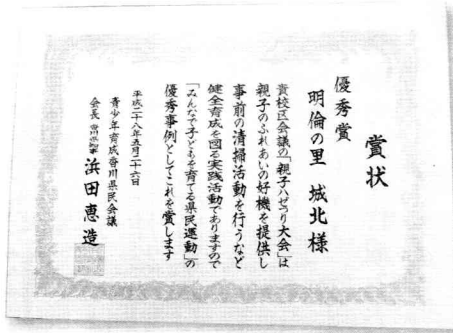 賞状
優秀賞
明倫の里 城北様
貴校区会議の「親子ハゼつり大会」は
親子のふれあいの好機を提供し
事前の清掃活動を行うなど
健全育成を図る実践活動でありますので
「みんなで子どもを育てる県民運動」の
優秀事例としてこれを賞します
平成二十八年五月二十六日
青少年育成香川県民会議
会長 香川県知事 浜田恵造